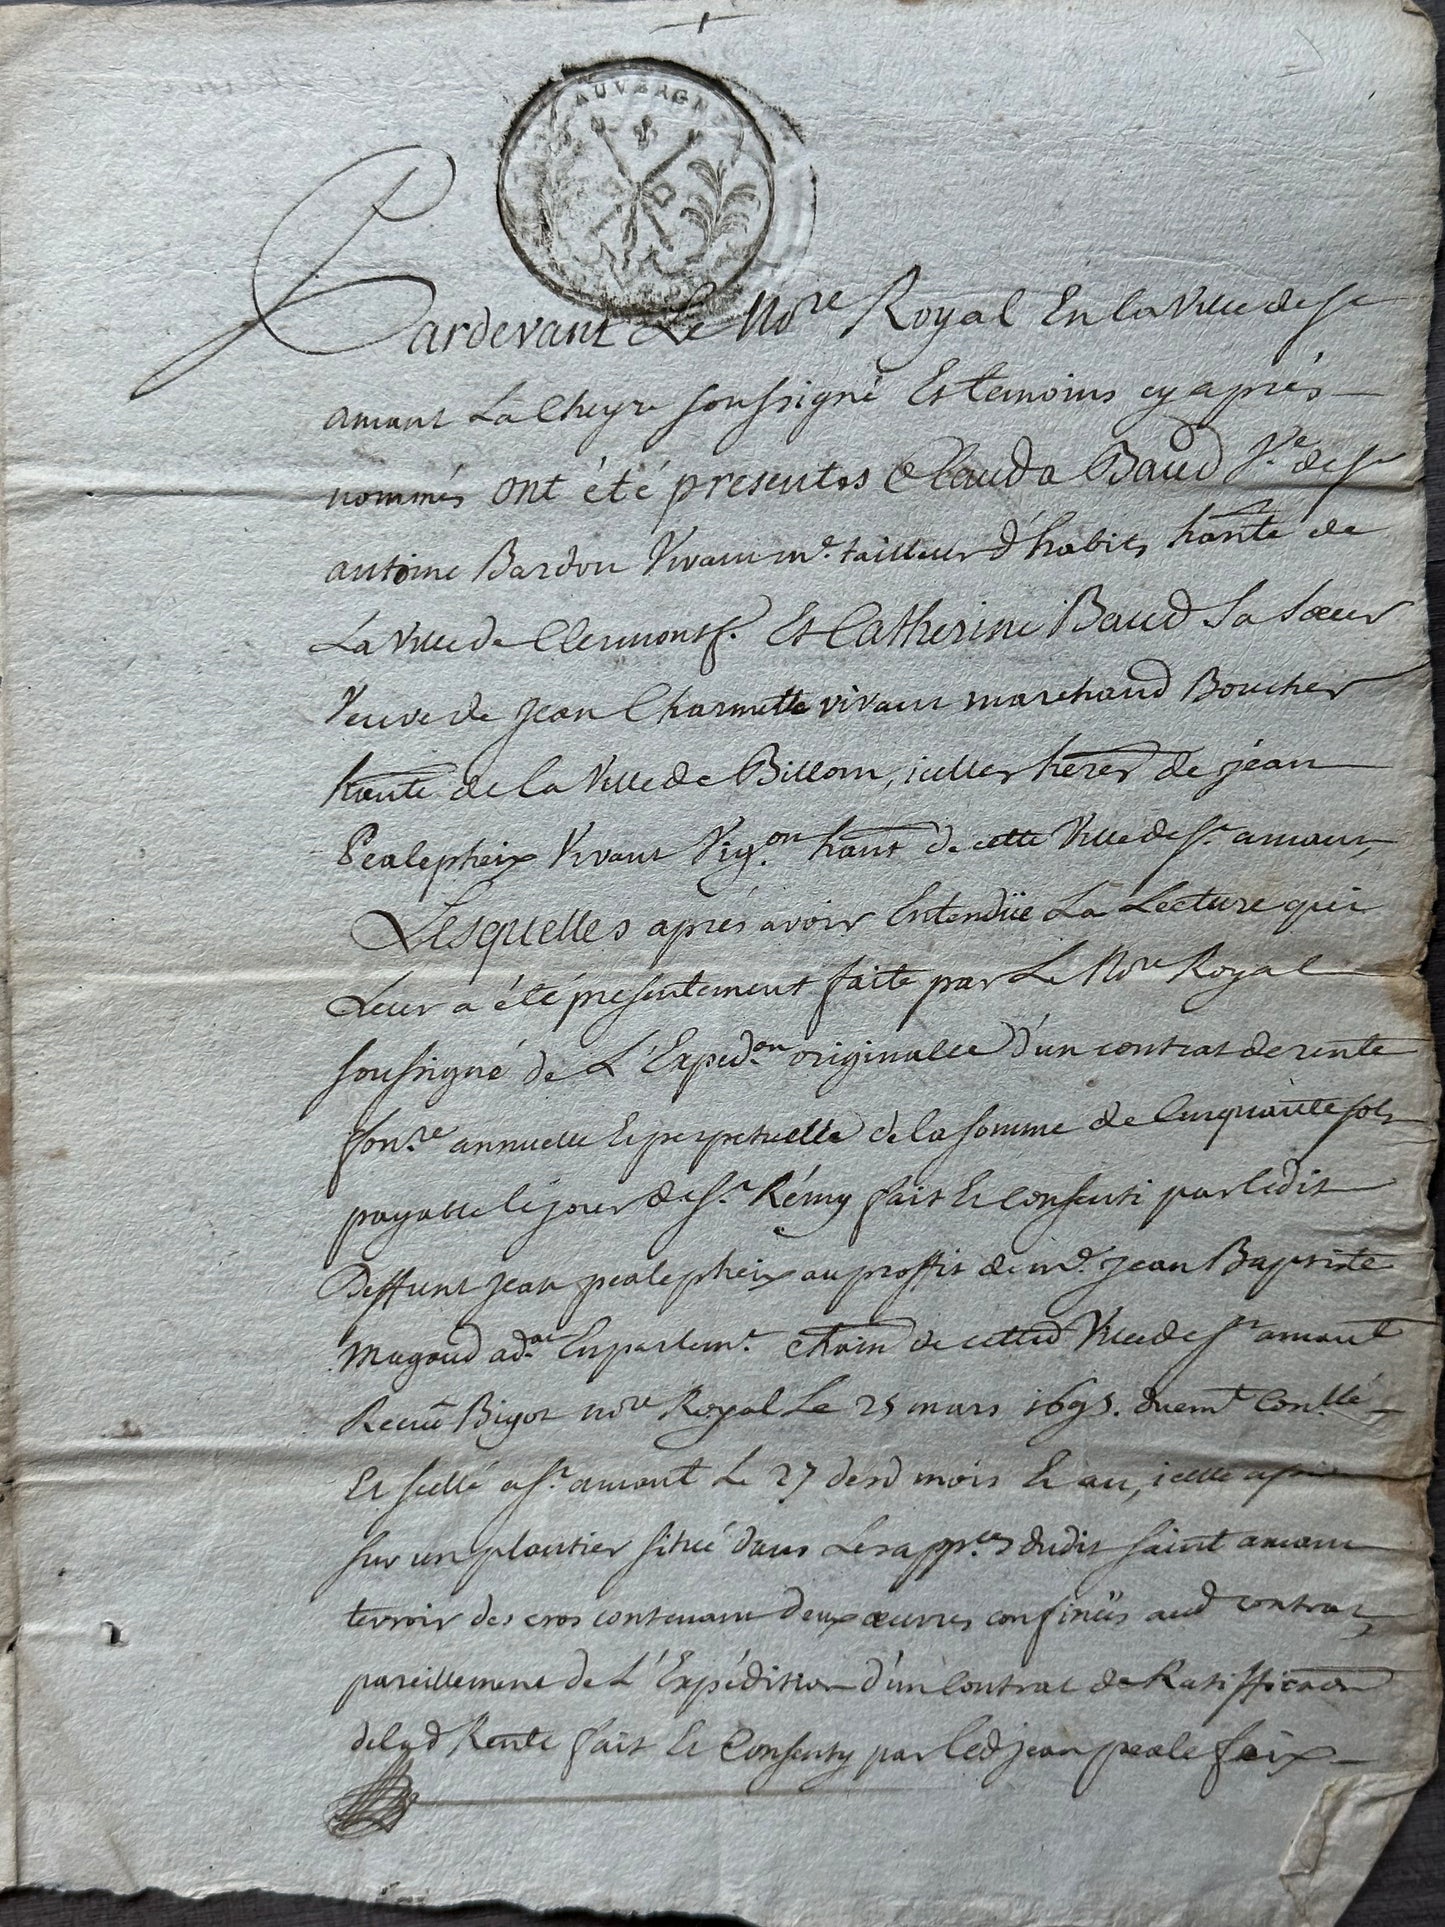 AUVERGNE
Pardevant Le No.re Royal En la Ville de st
amant La Cheyre soussigné Et temoins cy après
nommés ont été presentes Clauda Baud V.e de sr
antoine Bardon Vivant m.e tailleur d'habits hante de
La Ville de Clermontf. Et Catherine Baud Sa Sœur
Veuve de Jean Charmette vivant marchand Boucher
hante de la Ville de Billom, icelles herēs de jéan
Pealepheix Vivant Vig.on hant de cette Ville de st. amant,
Lesquelles aprés avoir Entendüe La Lecture qui
Leur a été presentement faite par Le No.re Royal
soussigné de L'Exped.on originalle d'un contrat de rente
fon.re annuelle Et perpetuelle de la somme de Cinquante sols
payable le jour de st. Rémy fait Et Consenti par ledit
Deffunt jean pealepheix au proffit de m.e Jean Baptiste
Magaud ad.at En parlem.t de cette Ville de st amant
Receu Bigot no.re Royal Le 25 mars 1695. duem.t Con.llé
Et scellé a st. amant Le 27 desd mois Et an, icelle
sur un plantier situé dans Les app.ces dudit saint amant
terroir des cros contenant deux œuvres confinés aud contrat,
pareillement de L'Expédition d'un Contrat de Ratiffication
de lad Rente fait Et Consenty par led jean pealefaix